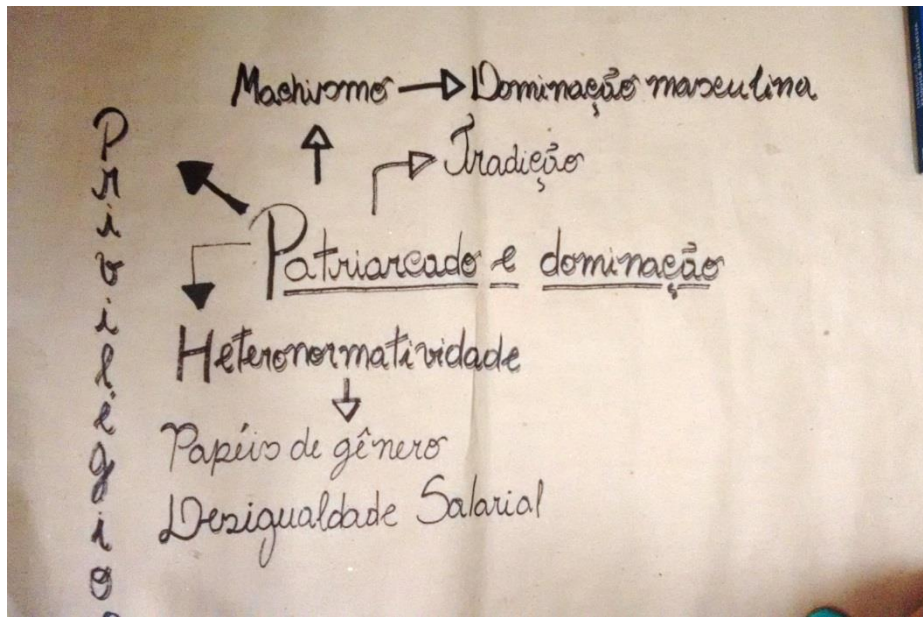 Machismo → Dominação masculina
Tradição
Patriarcado e dominação
Heteronormatividade
Papéis de gênero
Desigualdade Salarial
Privilégio